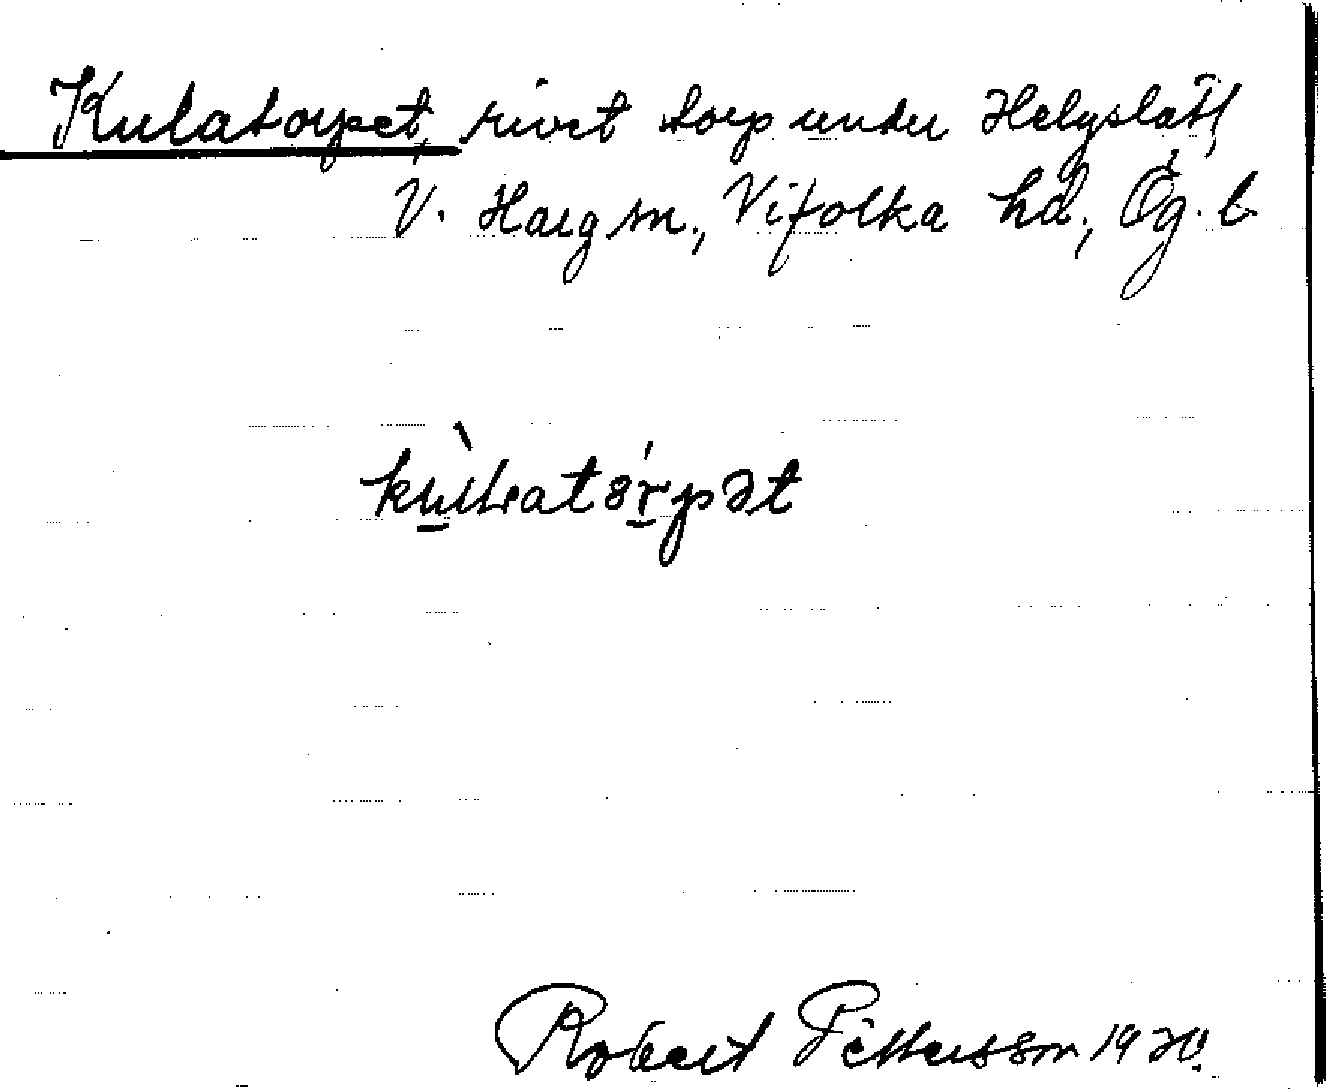 Kulatorpet, rivet torp under Helgslätt,
V. Harg sn., Vifolka hd., Ög. l.
Robert Pettersson 1930.